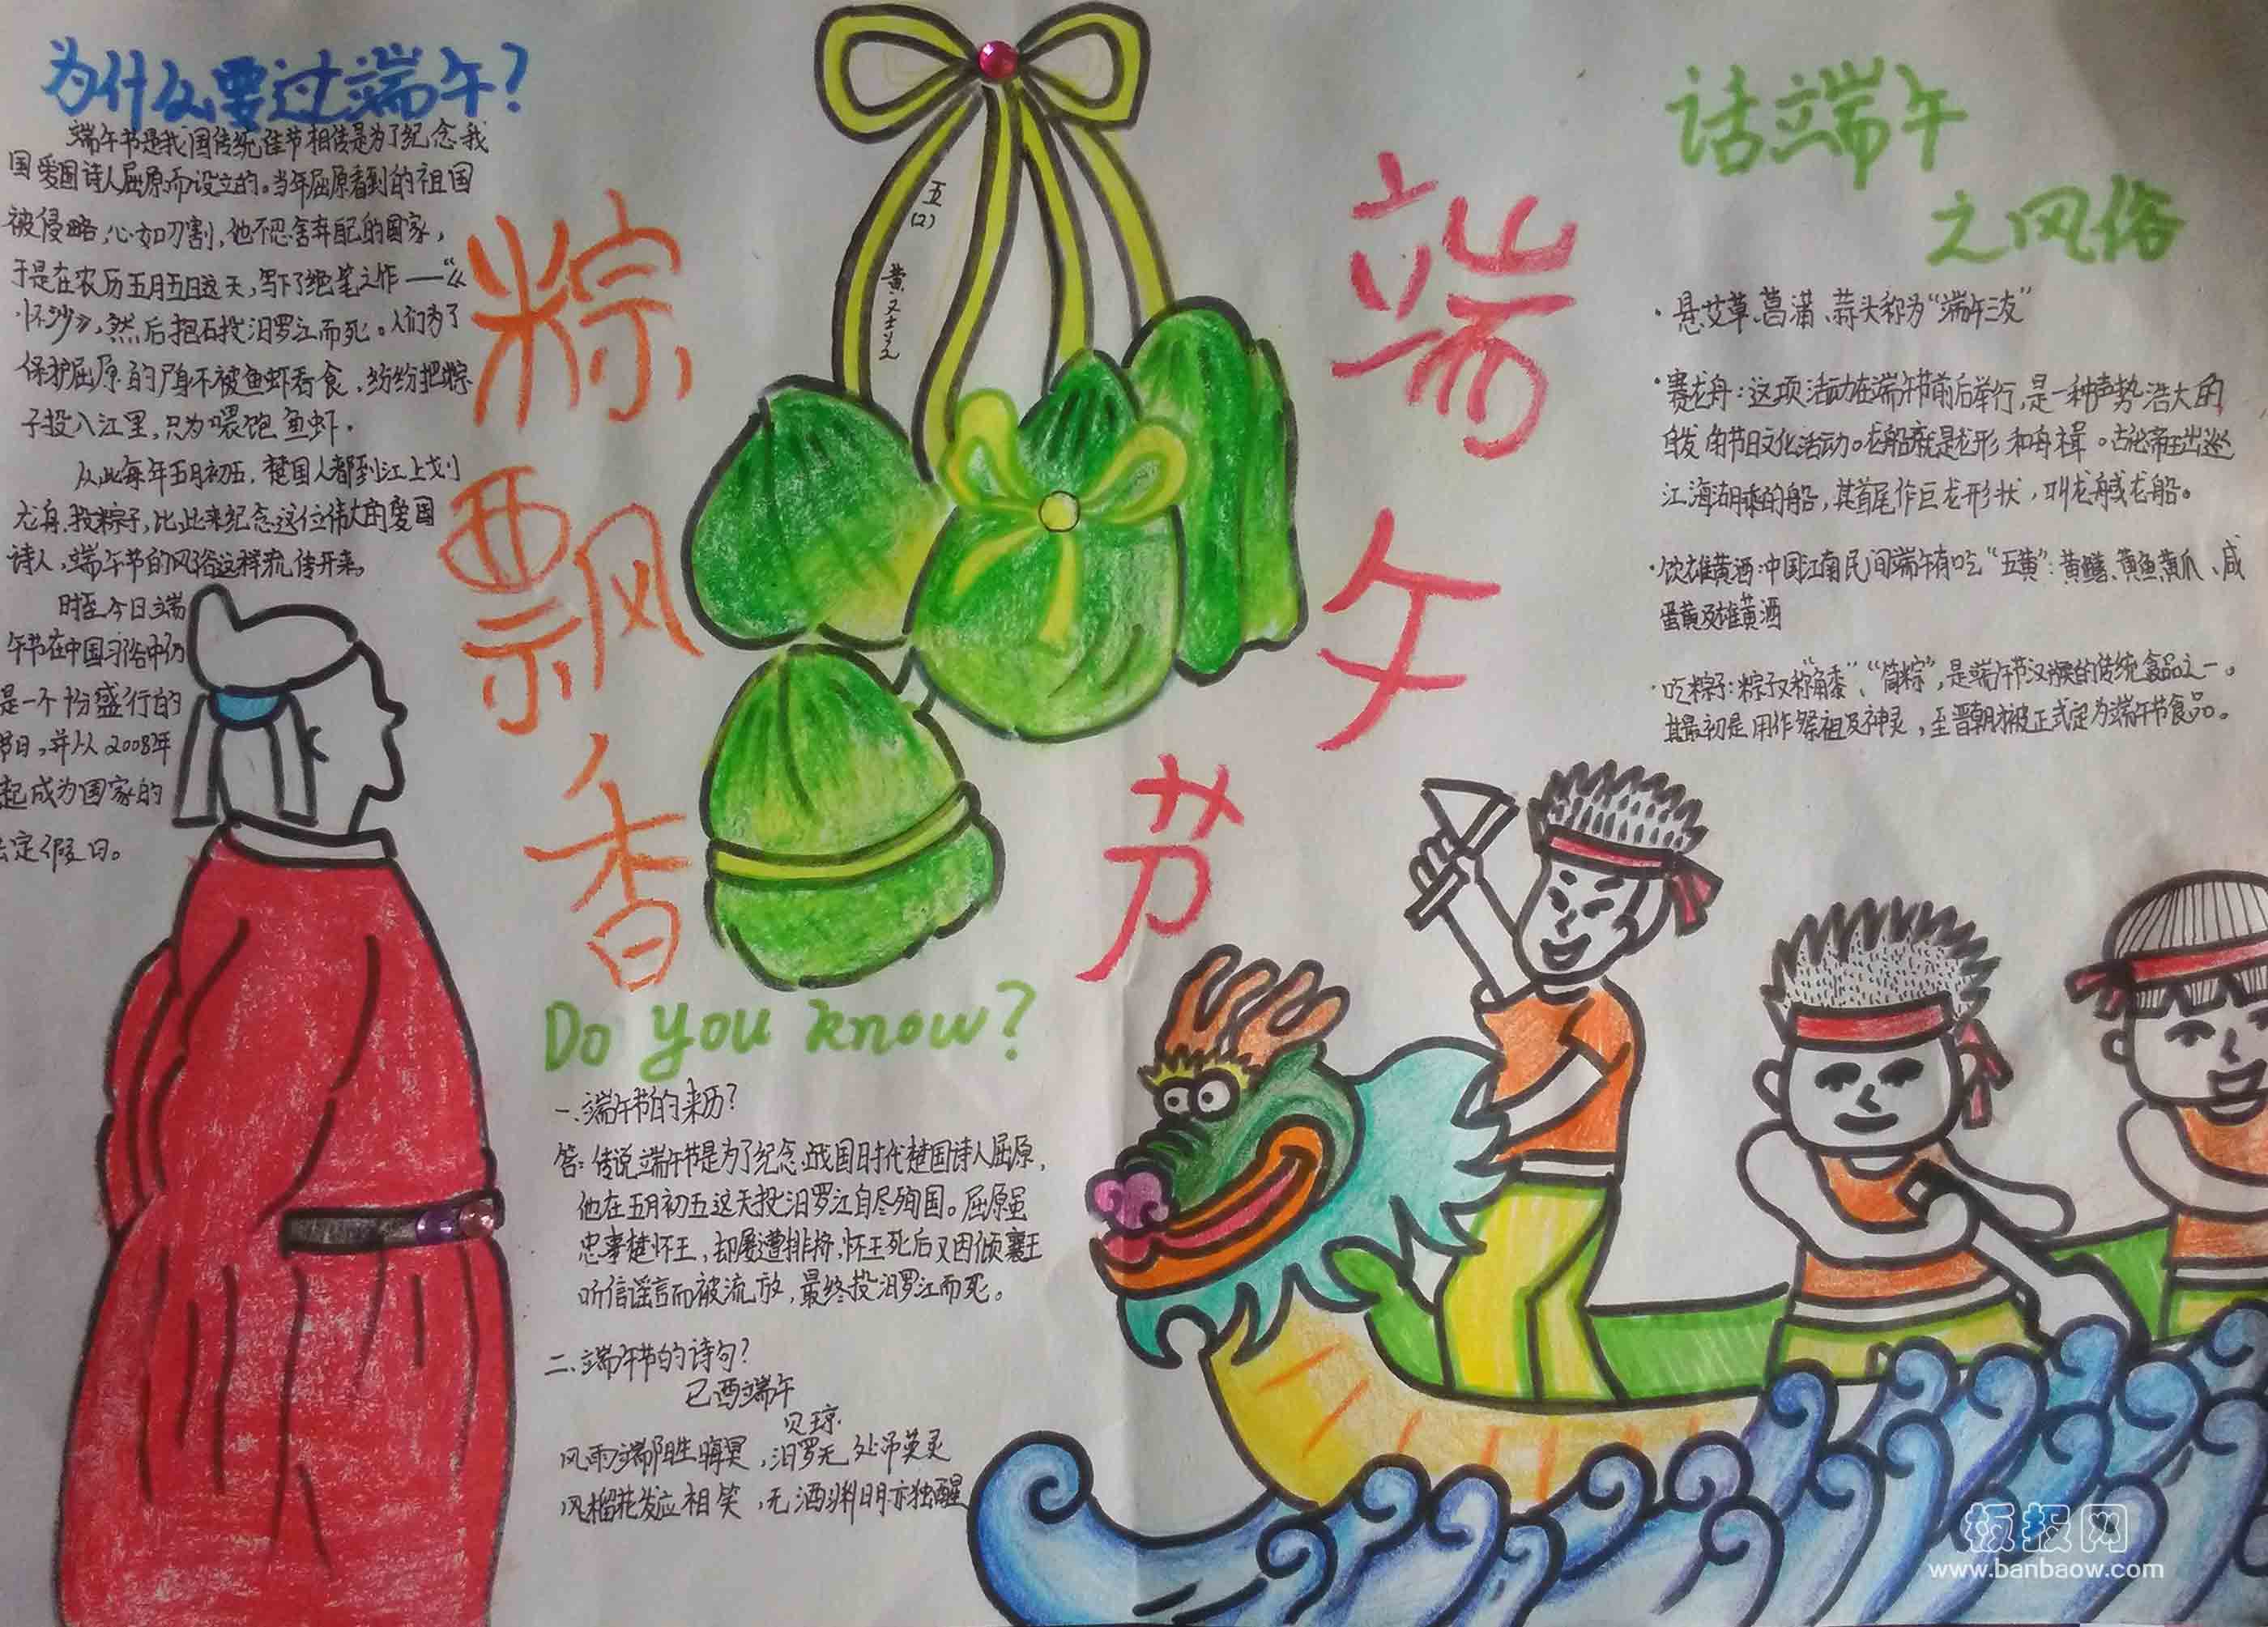 为什么要过端午?
端午节是我国传统佳节相传是为了纪念我
国爱国诗人屈原而设立的。当年屈原看到的祖国
被侵略,心如刀割,他不忍舍弃自己的国家,
于是在农历五月五日这天,写下了绝笔之作——《
怀沙》,然后抱石投汨罗江而死。人们为了
保护屈原的尸身不被鱼虾吞食,纷纷把粽
子投入江里,只为喂饱鱼虾.
从此每年五月初五,楚国人都到江上划
龙舟、投粽子,比此来纪念这位伟大的爱国
诗人,端午节的风俗这样流传开来。
时至今日端
午节在中国习俗中仍
是一个十份盛行的
节日,并从2008年
起成为国家的
法定假日。
粽飘香
五(2)
黄
端午节
Do you know?
一、端午节的来历?
答:传说端午节是为了纪念战国时代楚国诗人屈原,
他在五月初五这天投汨罗江自尽殉国。屈原虽
忠事楚怀王,却屡遭排挤,怀王死后又因倾襄王
听信谣言而被流放,最终投汨罗江而死。
二、端午节的诗句?
已酉端午
贝琼
风雨端阳生晦冥,汨罗无处吊英灵
风榴花发应相笑,无酒渊明亦独醒
话端午
之风俗
·悬艾草、菖蒲、蒜头称为“端午三友”
·赛龙舟:这项活动在端午节前后举行,是一种声势浩大的
自发的节日文化活动。龙船就是龙形和舟楫。古论帝王出巡
江海湖乘的船,其首尾作巨龙形状,叫龙舟或龙船。
·饮雄黄酒:中国江南民间端午有吃“五黄”:黄鳝、黄鱼黄瓜、咸
蛋黄及雄黄酒
·吃粽子:粽子又称“角黍”、“筒粽”,是端午节汉族的传统食品之一。
其最初是用作祭祖及神灵,至晋朝才被正式定为端午节食品。
板报网
www.banbaow.com